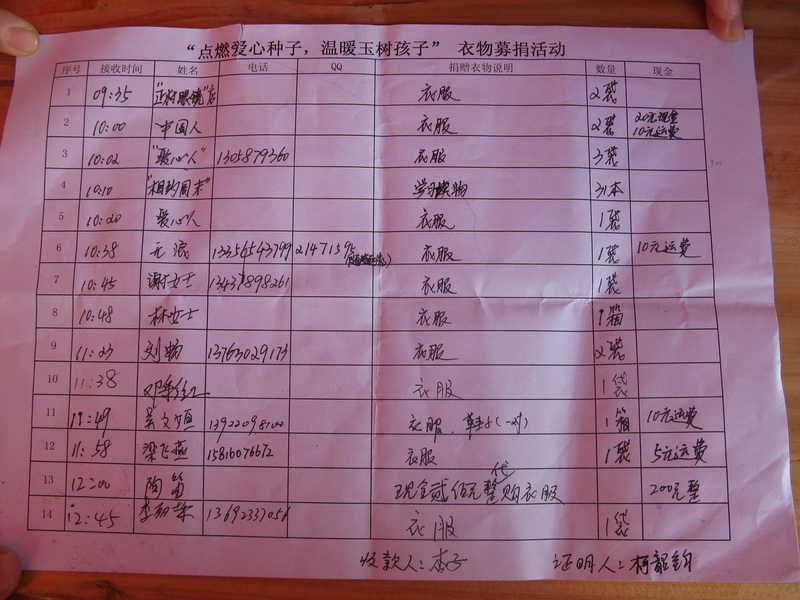 “点燃爱心种子，温暖玉树孩子” 衣物募捐活动
序号 接收时间 姓名 电话 QQ 捐赠衣物说明 数量 现金
1 09:35 衣服 2袋
2 10:00 中国人 衣服 2袋 20元现金
10元运费
3 10:02 "爱心人" 1305879360 衣服 3袋
4 10:10 "相约周末" 31本
5 10:20 爱心人 衣服 1袋
6 10:38 无浪 13356543799 衣服 1袋 10元运费
7 10:45 谢女士 13437898261 衣服 1袋
8 10:48 林女士 衣服 1箱
9 11:23 刘畅 13763029173 衣服 2袋
10 11:38 衣服 1袋
11 11:49 衣服、鞋子(一对) 1箱 10元运费
12 11:58 梁飞燕 15816076672 衣服 1袋 5元运费
13 12:00 陶笛 现金贰佰元整代购衣服 200元整
14 12:45 13692337056 衣服 1袋
收款人：李子 证明人：柯韶钧